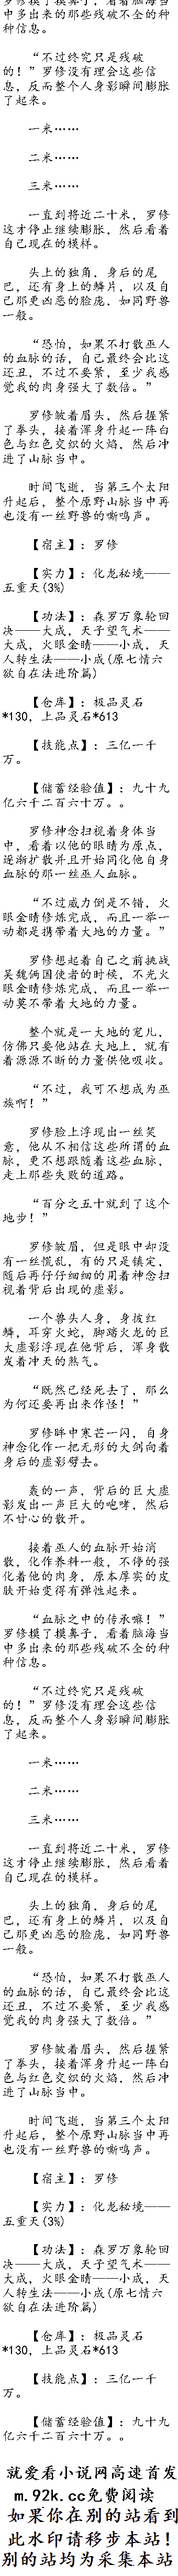 罗修摸了摸鼻子，看着脑海当
中多出来的那些残破不全的种
种信息。
“不过终究只是残破
的！”罗修没有理会这些信
息，反而整个人身影瞬间膨胀
了起来。
一米……
二米……
三米……
一直到将近二十米，罗修
这才停止继续膨胀，然后看着
自己现在的模样。
头上的独角，身后的尾
巴，还有身上的鳞片，以及自
己那更凶恶的脸庞，如同野兽
一般。
“恐怕，如果不打散巫人
的血脉的话，自己最终会比这
还丑，不过不要紧，至少我感
觉我的肉身强大了数倍。”
罗修皱着眉头，然后握紧
了拳头，接着浑身升起一阵白
色与红色交织的火焰，然后冲
进了山脉当中。
时间飞逝，当第三个太阳
升起后，整个原野山脉当中再
也没有一丝野兽的嘶鸣声。
【宿主】：罗修
【实力】：化龙秘境——
五重天(3%)
【功法】：森罗万象轮回
决——大成，天子望气术——
大成，火眼金睛——小成，天
人转生法——小成(原七情六
欲自在法进阶篇)
【仓库】：极品灵石
*130，上品灵石*613
【技能点】：三亿一千
万。
【储蓄经验值】：九十九
亿六千二百六十万。。
罗修神念扫视着身体当
中，看着以他的眼睛为原点，
逐渐扩散并且开始同化他自身
血脉的那一丝巫人血脉。
“不过威力倒是不错，火
眼金睛修炼完成，而且一举一
动都是携带着大地的力量。”
罗修想起着自己之前挑战
吴魏俩国使者的时候，不光火
眼金睛修炼完成，而且一举一
动莫不带着大地的力量。
整个就是一大地的宠儿，
仿佛只要他站在大地上，就有
着源源不断的力量供他吸收。
“不过，我可不想成为巫
族啊！”
罗修脸上浮现出一丝笑
意，他从不相信这些所谓的血
脉，更不想跟随着这些血脉，
走上那些失败的道路。
“百分之五十就到了这个
地步！”
罗修皱眉，但是眼中却没
有一丝慌乱，有的只是镇定，
随后再仔仔细细的用着神念扫
视着背后出现的虚影。
一个兽头人身，身披红
鳞，耳穿火蛇，脚踏火龙的巨
大虚影浮现在他背后，浑身散
发着冲天的煞气。
“既然已经死去了，那么
为何还要再出来作怪！”
罗修眸中寒芒一闪，自身
神念化作一把无形的大剑向着
身后的虚影劈去。
轰的一声，背后的巨大虚
影发出一声巨大的咆哮，然后
不甘心的散开。
接着巫人的血脉开始消
散，化作养料一般，不停的强
化着他的肉身，原本厚实的皮
肤开始变得有弹性起来。
“血脉之中的传承嘛！”
罗修摸了摸鼻子，看着脑海当
中多出来的那些残破不全的种
种信息。
“不过终究只是残破
的！”罗修没有理会这些信
息，反而整个人身影瞬间膨胀
了起来。
一米……
二米……
三米……
一直到将近二十米，罗修
这才停止继续膨胀，然后看着
自己现在的模样。
头上的独角，身后的尾
巴，还有身上的鳞片，以及自
己那更凶恶的脸庞，如同野兽
一般。
“恐怕，如果不打散巫人
的血脉的话，自己最终会比这
还丑，不过不要紧，至少我感
觉我的肉身强大了数倍。”
罗修皱着眉头，然后握紧
了拳头，接着浑身升起一阵白
色与红色交织的火焰，然后冲
进了山脉当中。
时间飞逝，当第三个太阳
升起后，整个原野山脉当中再
也没有一丝野兽的嘶鸣声。
【宿主】：罗修
【实力】：化龙秘境——
五重天(3%)
【功法】：森罗万象轮回
决——大成，天子望气术——
大成，火眼金睛——小成，天
人转生法——小成(原七情六
欲自在法进阶篇)
【仓库】：极品灵石
*130，上品灵石*613
【技能点】：三亿一千
万。
【储蓄经验值】：九十九
亿六千二百六十万。。
就爱看小说网高速首发
m.92k.cc免费阅读
如果你在别的站看到
此水印请移步本站！
别的站均为采集本站